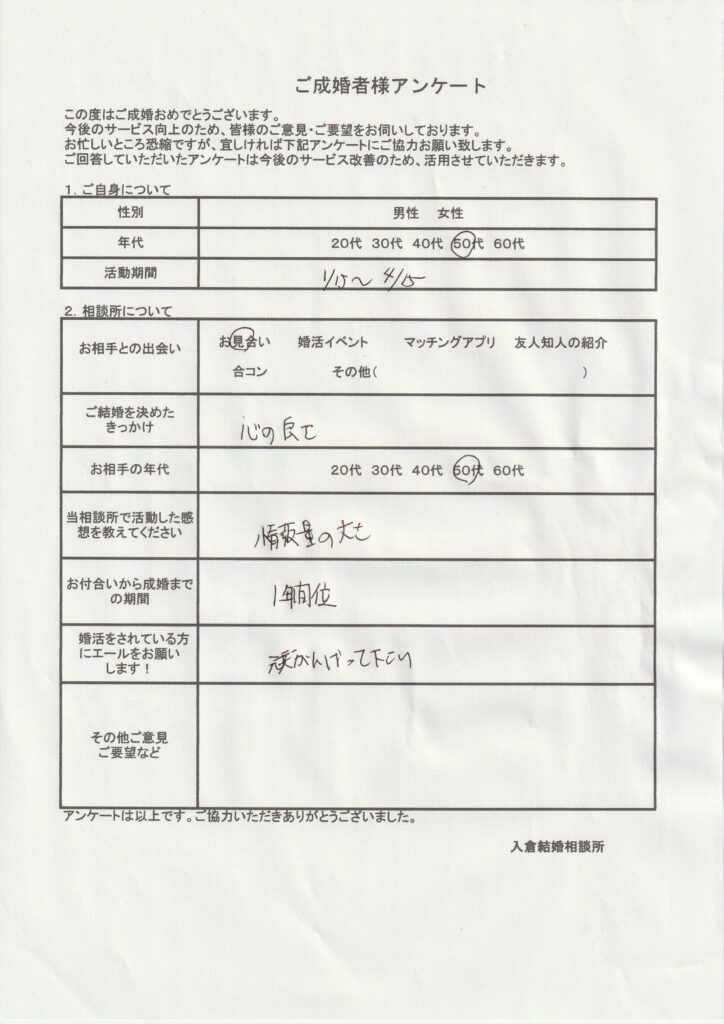 ご成婚者様アンケート
この度はご成婚おめでとうございます。
今後のサービス向上のため、皆様のご意見・ご要望をお伺いしております。
お忙しいところ恐縮ですが、宜しければ下記アンケートにご協力お願い致します。
ご回答していただいたアンケートは今後のサービス改善のため、活用させていただきます。
1. ご自身について
性別 男性 女性
年代 20代 30代 40代 50代 60代
活動期間 1/15〜4/15
2. 相談所について
お相手との出会い お見合い 婚活イベント マッチングアプリ 友人知人の紹介
合コン その他( )
ご結婚を決めた
きっかけ
心の良さ
お相手の年代 20代 30代 40代 50代 60代
当相談所で活動した感
想を教えてください
量の大さ
お付合いから成婚まで
の期間
1年間位
婚活をされている方
にエールをお願い
します！
がんばって下さい
その他ご意見
ご要望など
アンケートは以上です。ご協力いただきありがとうございました。
入倉結婚相談所